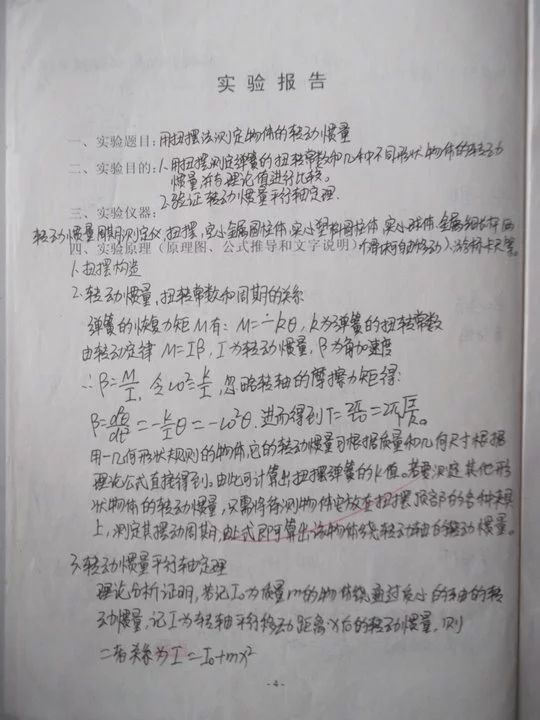 实验报告
一、实验题目:用扭摆法测定物体的转动惯量
二、实验目的:1.用扭摆测定弹簧的扭转常数和几种不同形状物体的转动
惯量并与理论值进行比较。
2.验证转动惯量平行轴定理.
三、实验仪器:
转动惯量周期测定仪,扭摆,实心金属圆柱体,实心塑料圆柱体,实心球体,金属细长杆(两
四、实验原理(原理图、公式推导和文字说明) 个滑块可自由移动),游标卡尺等。
1.扭摆构造
2.转动惯量,扭转常数和周期的关系
弹簧的恢复力矩M有: M=-kθ, k为弹簧的扭转常数
由转动定律 M=Iβ, I为转动惯量, β为角加速度
∴β=M/I, 令ω²=k/I, 忽略转轴的摩擦力矩得:
β=d²θ/dt²=-k/Iθ=-ω²θ. 进而得到T=2π/ω=2π√I/k。
用一几何形状规则的物体,它的转动惯量可根据质量和几何尺寸根据
理论公式直接得到。由此可计算出扭摆弹簧的k值。若要测定其他形
状物体的转动惯量,只需将待测物体安放在扭摆顶部的各种夹具
上,测定其摆动周期,由上式即可算出该物体绕转动轴的转动惯量。
3.转动惯量平行轴定理
理论分析证明,若记I₀为质量m的物体绕通过质心的轴的转
动惯量,记I为转轴平行移动距离x后的转动惯量,则
二者关系为I=I₀+mx²
-4-